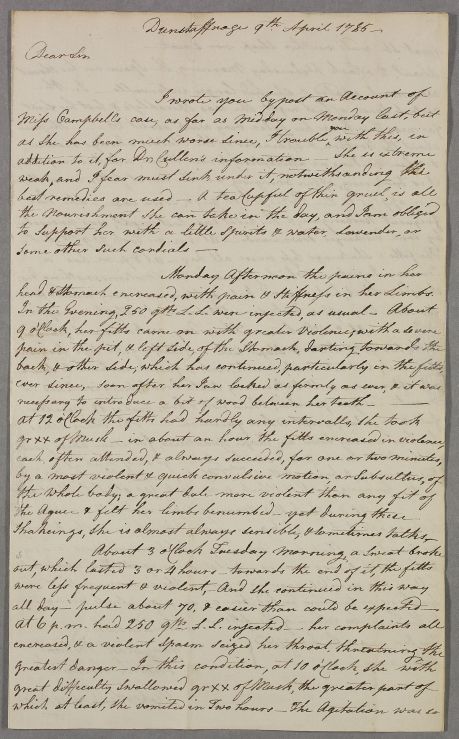 Dunstaffnage 9th April 1786 —
Dear Sir
I wrote you by post an Account of
Miss Campbell's case, as far as Midday on Monday last; but
as she has been much worse since, I trouble you with this, in
addition to it, for Dr Cullen's information — She is extreme
weak, and I fear must sink under it, notwithstanding the
best remedies are used — A teacupful of thin gruel, is all
the Nourishment she can take in the day, and I am obliged
to support her with a little Spirits & water, Lavender, or
some other such cordials —
Monday Afternoon the pains in her
head & stomach encreased, with pain & stiffness in her Limbs
In the Evening, 250 gtts L.L. were injected, as usual — About
9 o'Clock, her fitts came on with greater violence, with a severe
pain in the pit, & left side, of the Stomach, darting towards the
back, & other side, which has continued, particularly in the fitts,
ever since, soon after her Jaw locked as firmly as ever, & it was
necessary to introduce a bit of wood between her teeth —
At 12 o'Clock the fitts had hardly any intervales, She took
gr xx of Musk — in about an hour the fitts encreased in violence,
each often attended, & always succeeded, for one or two minutes,
by a most violent & quick convulsive motion, or Subsultus, of
the whole body; a great dale more violent than any fit of
the Ague & felt her limbs benumbed — yet during these
Shakeings, she is almost always sensible, & sometimes talks —
About 3 o'Clock Tuesday Morning, a sweat broke
out, which lasted 3 or 4 hours — towards the end of it, the fitts
were less frequent & violent, And she continued in this way
all day — pulse about 70, & easier than could be expected —
At 6 p.m. had 250 gtts L.L. injected — her complaints all
encreased, & a violent spasm seized her throat, threatning the
greatest danger — In this condition, at 10 o'Clock, she with
great difficulty swallowed gr xx of Musk, the greater part of
which at least, she vomited in Two hours — The Agitation was so